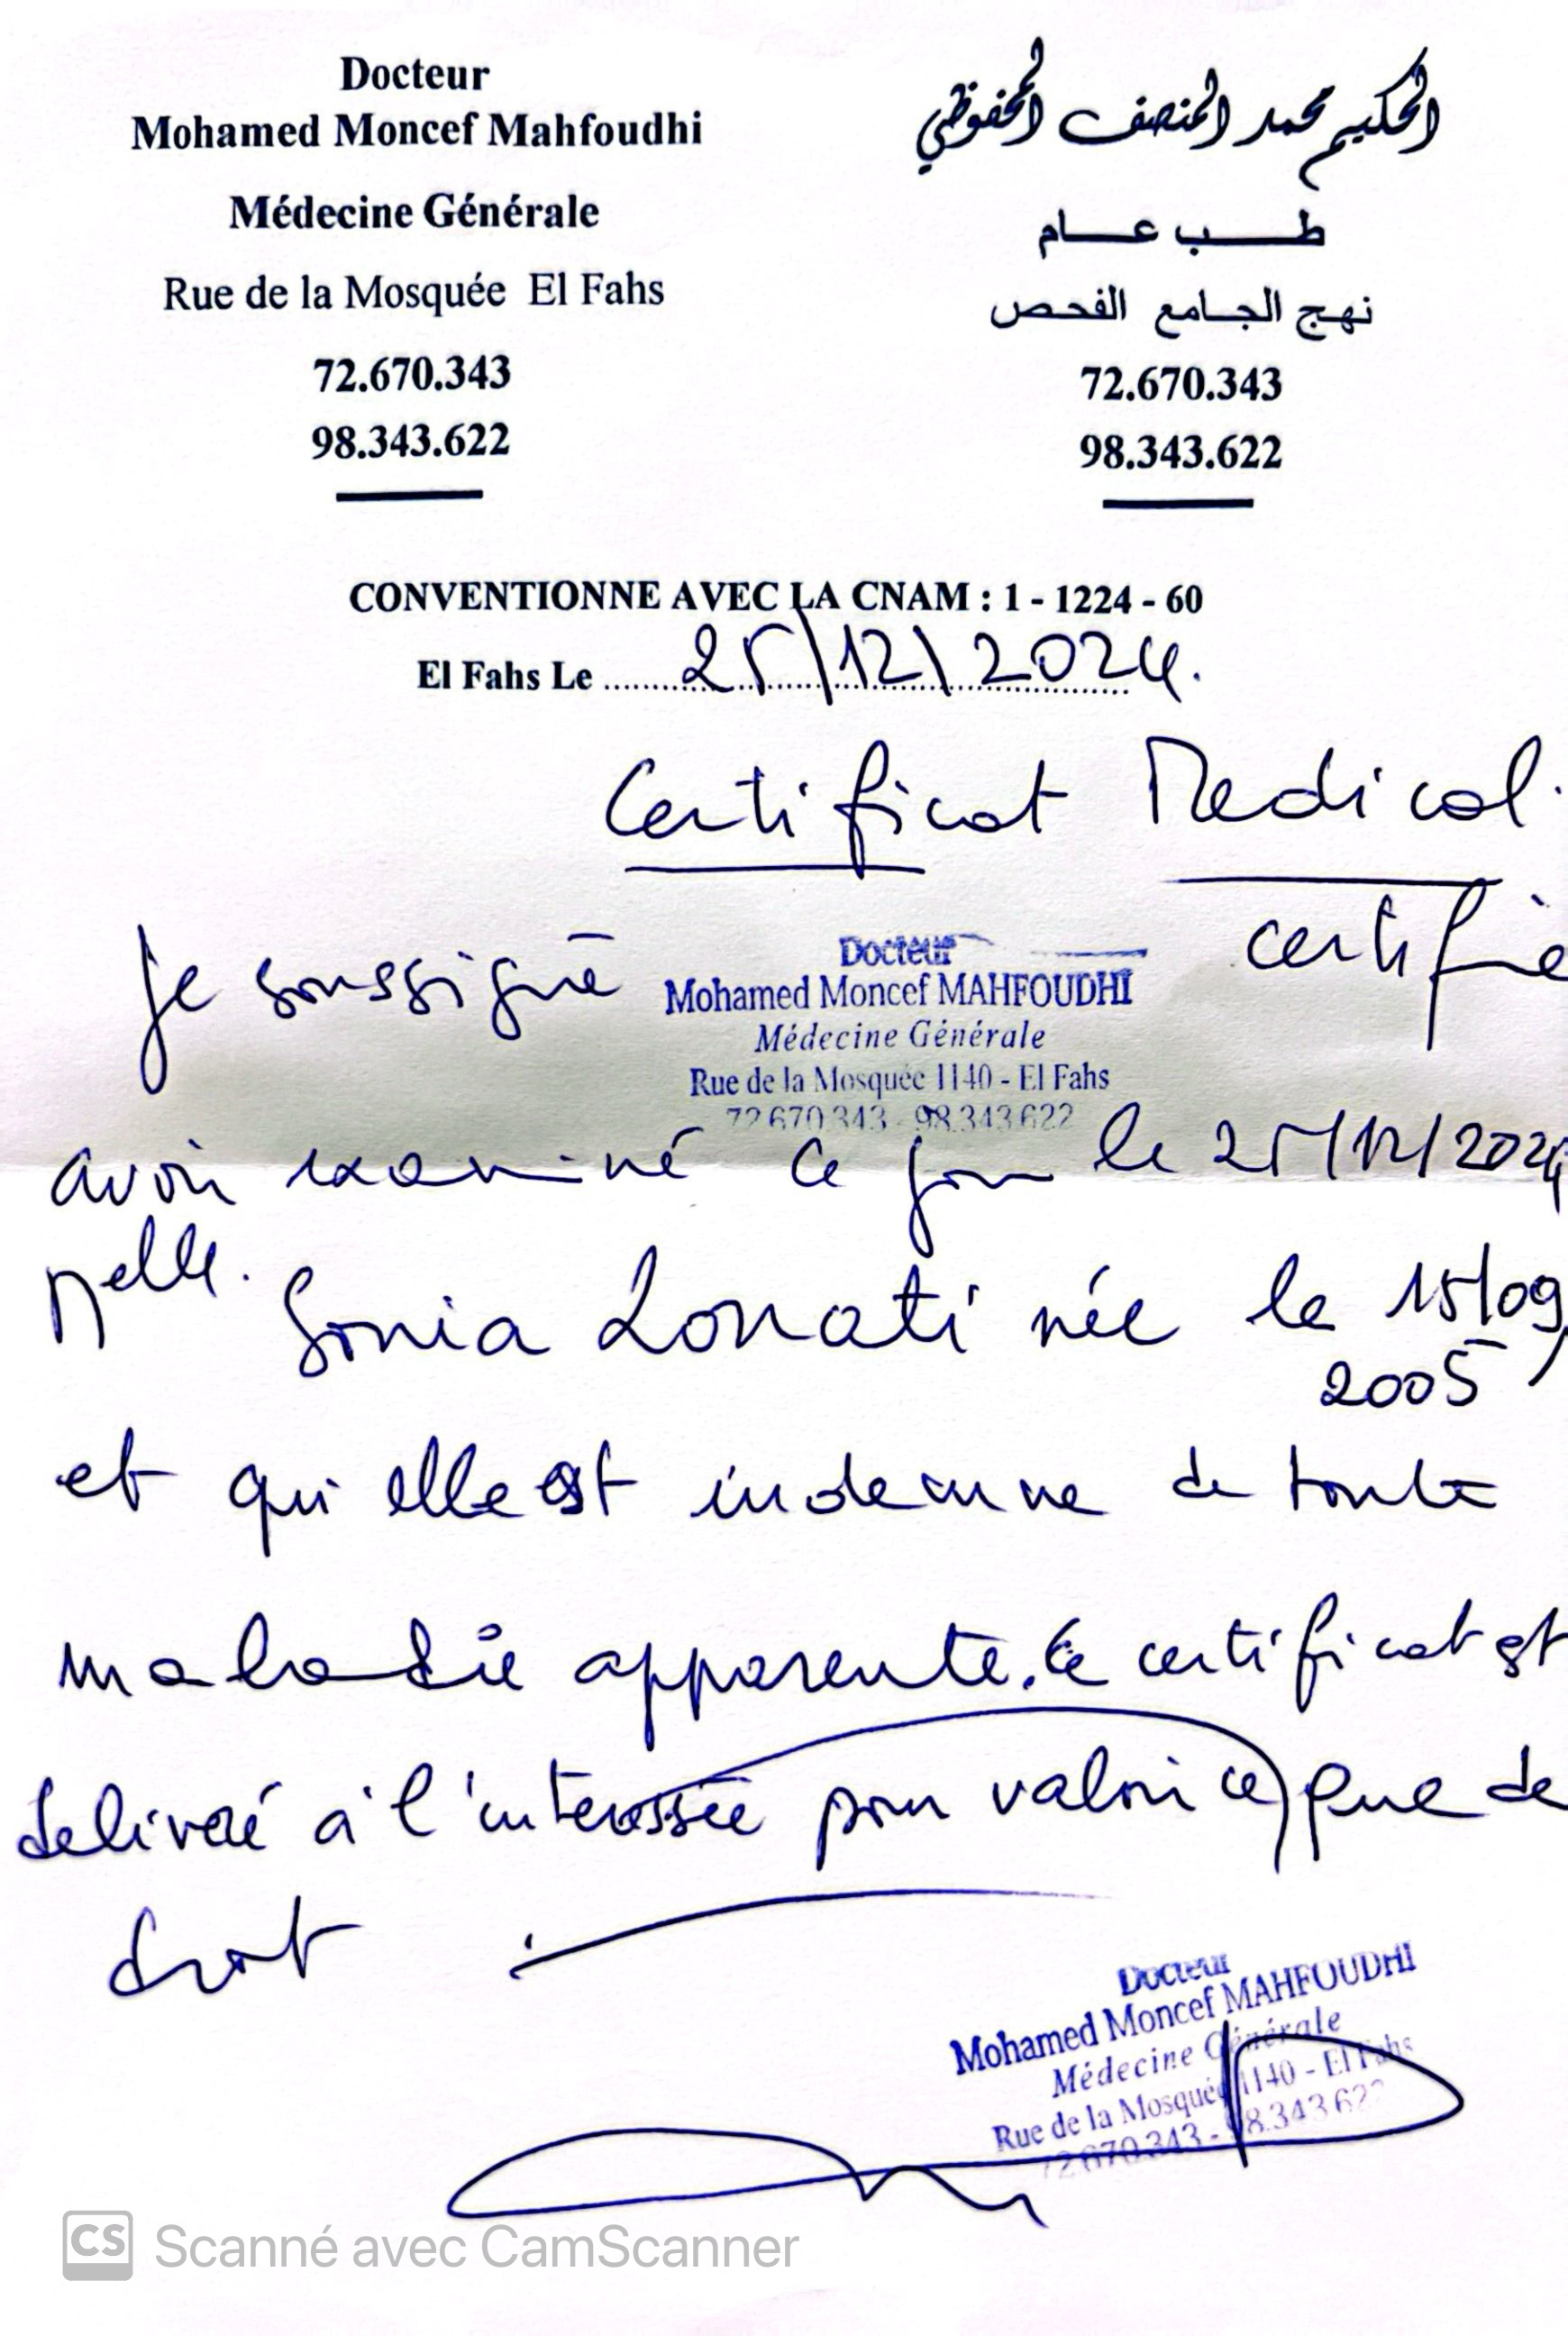 Docteur
Mohamed Moncef Mahfoudhi
Médecine Générale
Rue de la Mosquée El Fahs
72.670.343
98.343.622
الحكيم محمد المنصف المحفوظي
طب عام
نهج الجامع الفحص
72.670.343
98.343.622
CONVENTIONNE AVEC LA CNAM : 1 - 1224 - 60
El Fahs Le 25/12/2024.
Certificat Medical.
Je soussigné
Docteur
Mohamed Moncef MAHFOUDHI
Médecine Générale
Rue de la Mosquée 1140 - El Fahs
72 670 343 - 98.343.622
certifie
avoir examiné ce jour le 25/12/2024
Melle. Sonia Lonati née le 15/09/
2005
et qu'elle est indemne de toute
maladie apparente. Ce certificat est
delivré à l'interessée pour valoir ce que de
droit.
Docteur
Mohamed Moncef MAHFOUDHI
Médecine Générale
Rue de la Mosquée 1140 - El Fahs
72 670 343 - 98.343 622
CS Scanné avec CamScanner